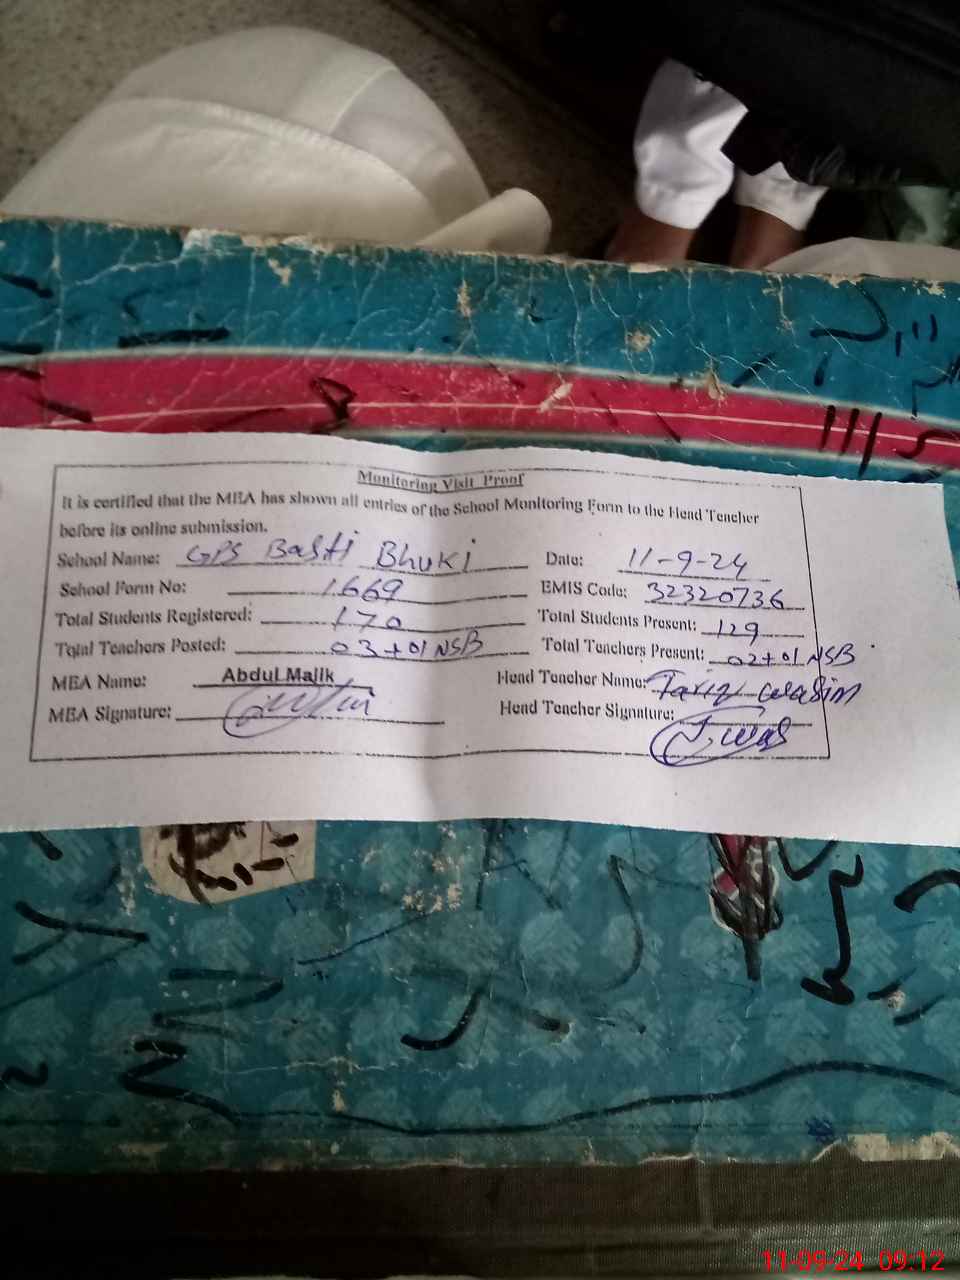 Monitoring Visit Proof
It is certified that the MEA has shown all entries of the School Monitoring Form to the Head Teacher
before its online submission.
School Name: GPS Basti Bhuki Date: 11-9-24
School Form No: 1669 EMIS Code: 32320736
Total Students Registered: 170 Total Students Present: 129
Total Teachers Posted: 03+01 NSB Total Teachers Present: 02+01 NSB
MEA Name: Abdul Majik Head Teacher Name: Tariq Wasim
MEA Signature: Head Teacher Signature: T. Was
11-09-24 09:12